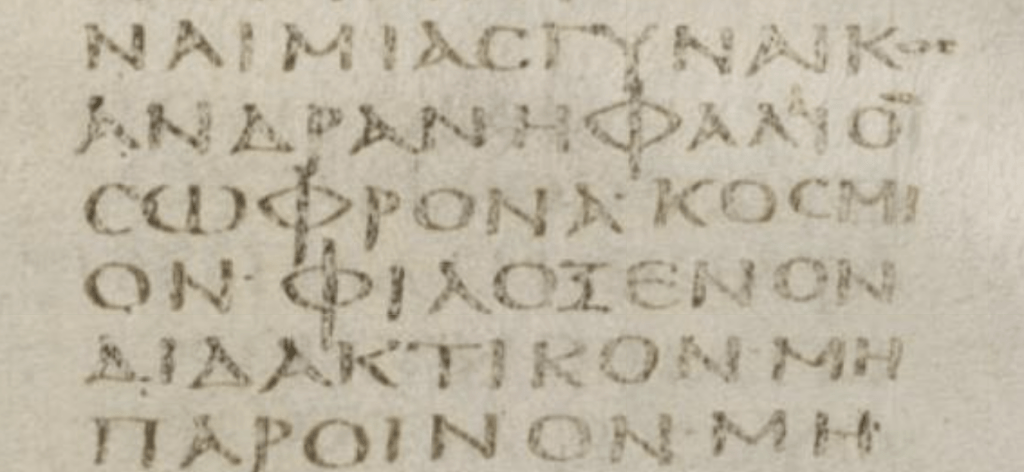 ΝΑΙΜΙΑϹΓΥΝΑΙΚΟϹ
ΑΝΔΡΑΝΗΦΑΛΙΟ̅
ϹΩΦΡΟΝΑ·ΚΟϹΜΙ
ΟΝ·ΦΙΛΟΞΕΝΟΝ
ΔΙΔΑΚΤΙΚΟΝ·ΜΗ
ΠΑΡΟΙΝΟΝ·ΜΗ